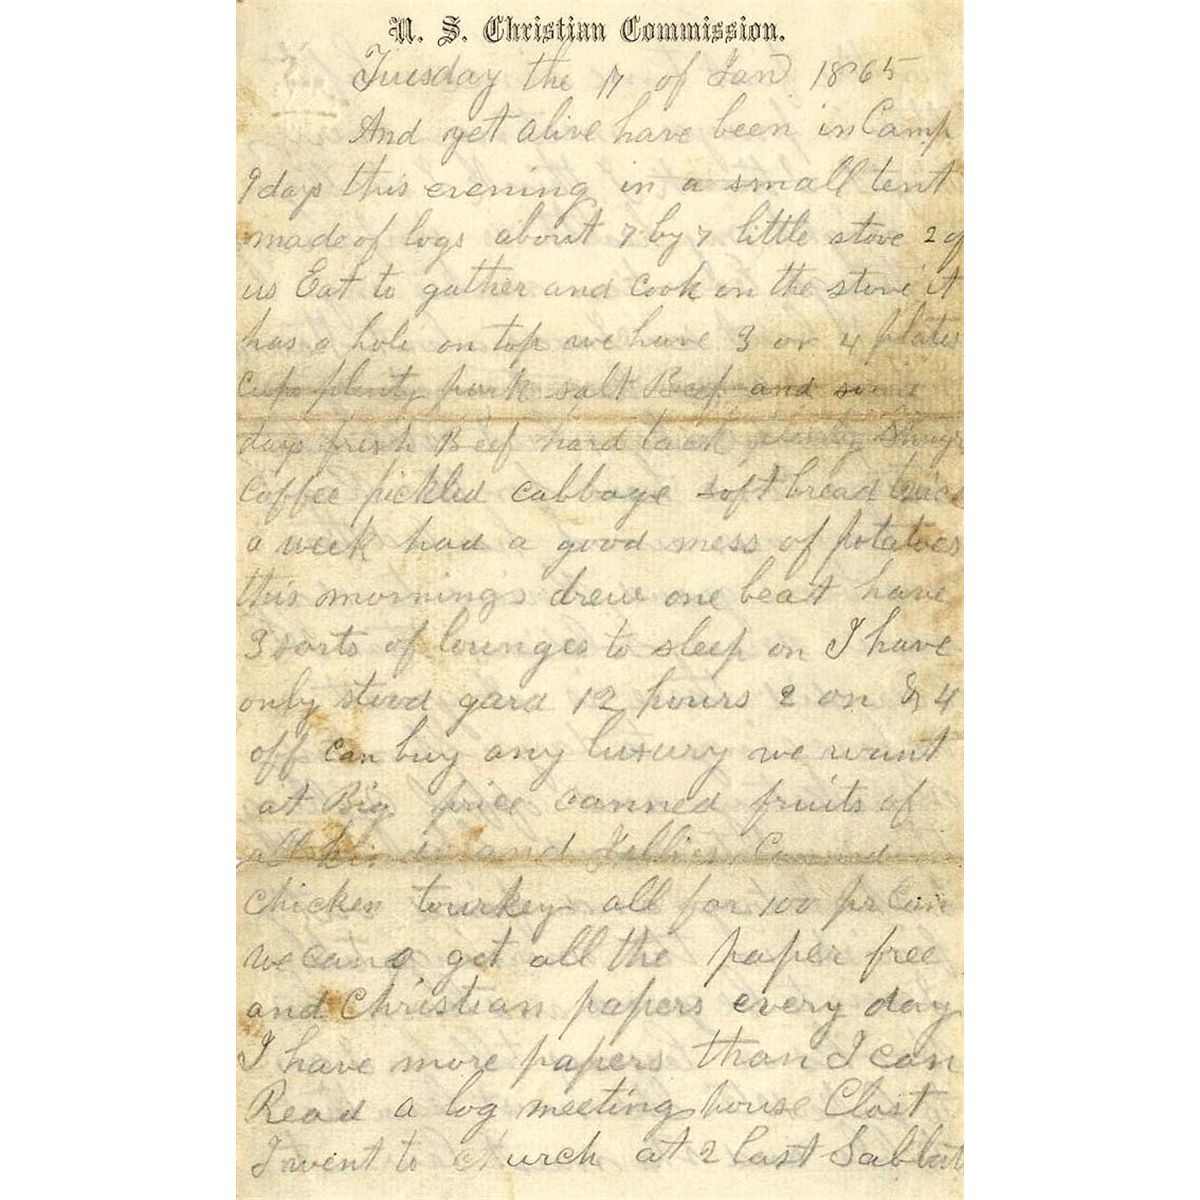 U. S. Christian Commission.
Tuesday the 17 of Jan 1865
And yet alive have been in Camp
9 days this evening in a small tent
made of logs about 7 by 7 little stove 2 of
us Eat to gather and cook on the stove it
has a hole on top we have 3 or 4 plates
cups plenty pork salt Beef and some
days fresh Beef hard tack plenty
Coffee pickled cabbage soft bread twice
a week had a good mess of potatoes
this morning s drew one beat have
3 sorts of lounges to sleep on I have
only stood gard 12 hours 2 on & 4
off can buy any luxury we want
at Big price canned fruits of
all and Jellies Canned
chicken tourkey all for 100 pr Can
we can get all the paper free
and Christian papers every day
I have more papers than I can
Read a log meeting house Clost
I went to church at 2 last Sabbath